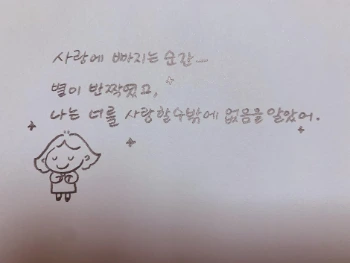 사랑에 빠지는 순간_
별이 반짝였고,
나는 너를 사랑할수밖에 없음을 알았어.